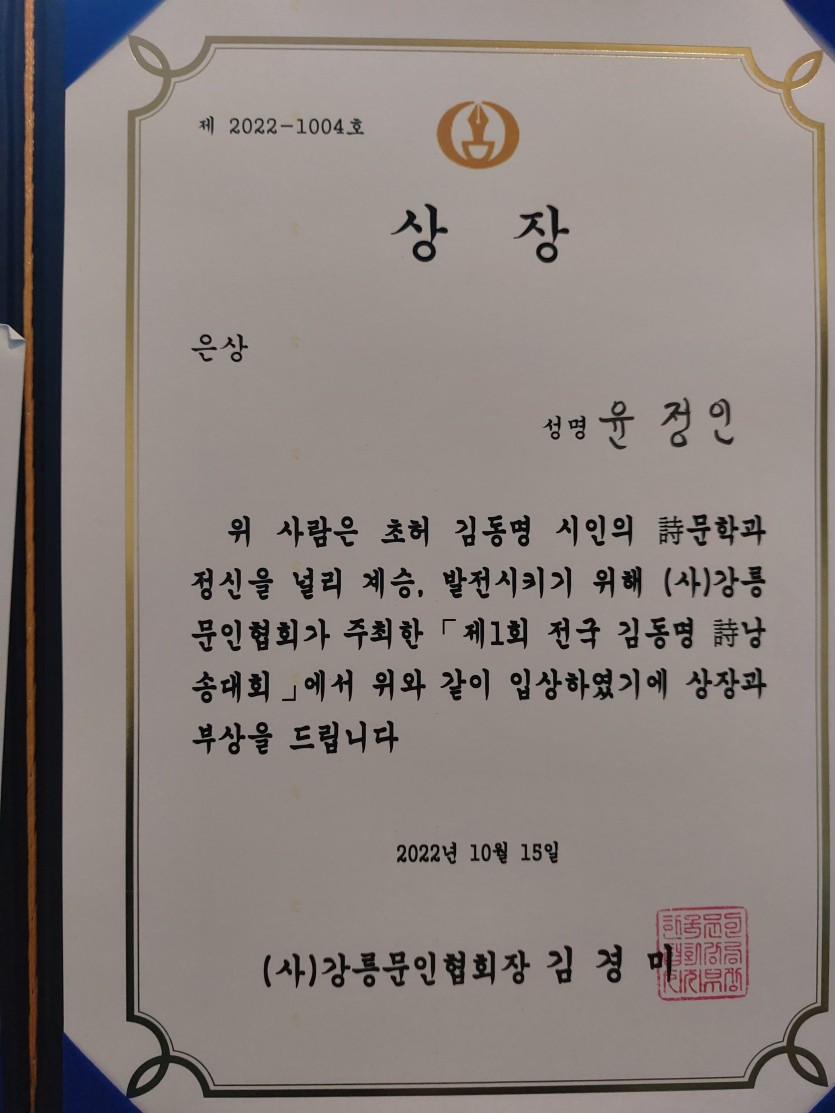 제 2022-1004호
상 장
은상
성명 윤 정 인
위 사람은 초허 김동명 시인의 詩문학과
정신을 널리 계승, 발전시키기 위해 (사)강릉
문인협회가 주최한 「제1회 전국 김동명 詩낭
송대회」에서 위와 같이 입상하였기에 상장과
부상을 드립니다
2022년 10월 15일
(사)강릉문인협회장 김 경 미